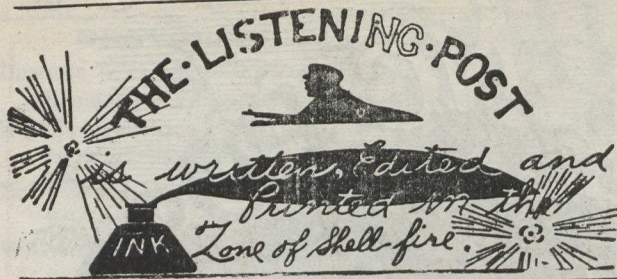 THE·LISTENING·POST
is written, Edited and
Printed in the
Zone of Shell fire.
INK